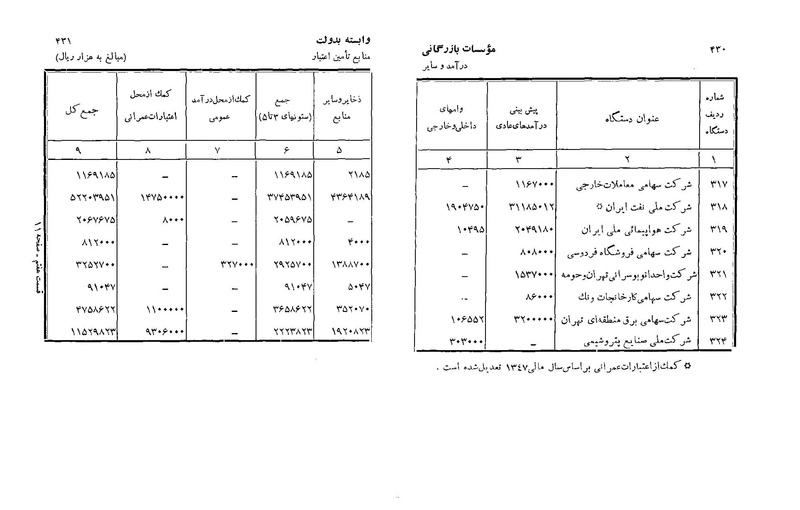 ۴۳۰
مؤسسات بازرگانی
درآمد و سایر
شماره ردیف دستگاه | عنوان دستگاه | پیش بینی درآمدهای عادی | وامهای داخلی و خارجی
۱ | ۲ | ۳ | ۴
۳۱۷ | شرکت سهامی معاملات خارجی | ۱۱۶۷۰۰۰ | –
۳۱۸ | شرکت ملی نفت ایران ☼ | ۳۱۱۸۵۰۱۲ | ۱۹۰۴۷۵۰
۳۱۹ | شرکت هواپیمائی ملی ایران | ۲۰۴۹۱۸۰ | ۱۰۴۹۵
۳۲۰ | شرکت سهامی فروشگاه فردوسی | ۸۰۸۰۰۰ | –
۳۲۱ | شرکت واحد اتوبوسرانی تهران و حومه | ۱۵۳۷۰۰۰ | –
۳۲۲ | شرکت سهامی کارخانجات ونک | ۸۶۰۰۰ | –
۳۲۳ | شرکت سهامی برق منطقه‌ای تهران | ۳۲۰۰۰۰۰ | ۱۰۶۵۵۲
۳۲۴ | شرکت ملی صنایع پتروشیمی | – | ۳۰۳۰۰۰
☼ کمک از اعتبارات عمرانی براساس سال مالی ۱۳۴۷ تعدیل شده است .
وابسته بدولت
۴۳۱
منابع تأمین اعتبار
(مبالغ به هزار ریال)
ذخایر و سایر منابع | جمع (ستونهای ۳ تا ۵) | کمک از محل درآمد عمومی | کمک از محل اعتبارات عمرانی | جمع کل
۵ | ۶ | ۷ | ۸ | ۹
۲۱۸۵ | ۱۱۶۹۱۸۵ | – | – | ۱۱۶۹۱۸۵
۴۳۶۴۱۸۹ | ۳۷۴۵۳۹۵۱ | – | ۱۴۷۵۰۰۰۰ | ۵۲۲۰۳۹۵۱
– | ۲۰۵۹۶۷۵ | – | ۸۰۰۰ | ۲۰۶۷۶۷۵
۴۰۰۰ | ۸۱۲۰۰۰ | – | – | ۸۱۲۰۰۰
۱۳۸۸۷۰۰ | ۲۹۲۵۷۰۰ | ۳۲۷۰۰۰ | – | ۳۲۵۲۷۰۰
۵۰۴۷ | ۹۱۰۴۷ | – | – | ۹۱۰۴۷
۳۵۲۰۷۰ | ۳۶۵۸۶۲۲ | – | ۱۱۰۰۰۰۰ | ۴۷۵۸۶۲۲
۱۹۲۰۸۲۳ | ۲۲۲۳۸۲۳ | – | ۹۳۰۶۰۰۰ | ۱۱۵۲۹۸۲۳
قسمت هفتم – صفحه ۱۱